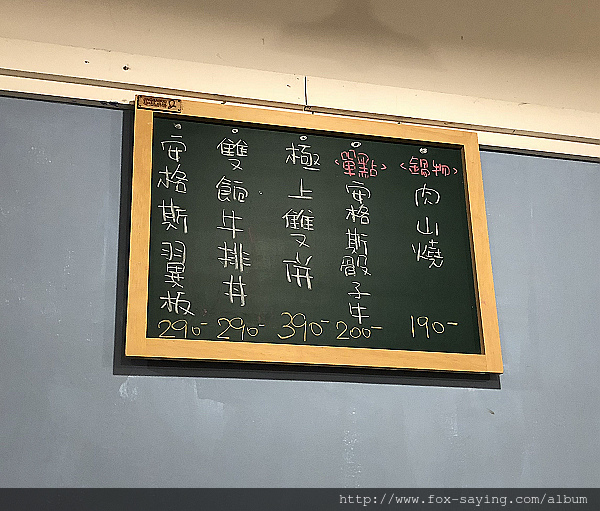 <鍋物>
肉山燒
190-
<單點>
安格斯骰子牛
200-
極上雙拼
390-
雙餉牛排丼
290-
安格斯翼板
290-
http://www.fox-saying.com/album